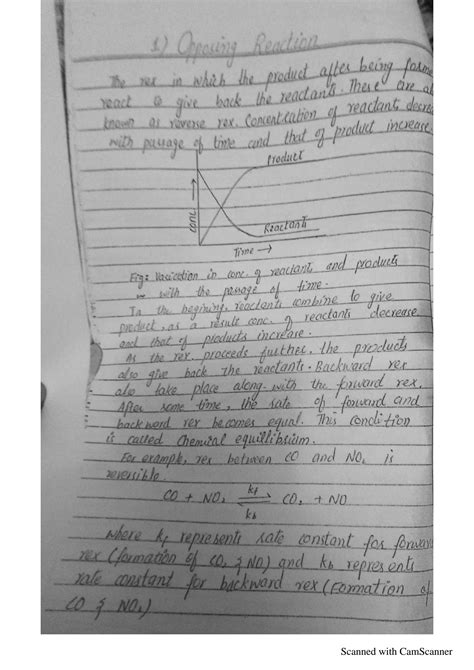 1) Opposing Reaction
The rex in which the product after being forme
react to give back the reactants. These are al
known as reverse rex. Concentration of reactant decrea
with passage of time and that of product increase.
Product
conc
Reactants
Time
Fig: Variation in conc. of reactant and products
with the passage of time.
In the begining, reactants combine to give
product, as a result conc. of reactants decrease
and that of products increase.
As the rex. proceeds further, the products
also give back the reactants. Backward rex
also take place along with the forward rex.
After some time, the rate of forward and
backward rex becomes equal. This condition
is called chemical equilibrium.
For example, rex between CO and NO₂ is
reversible.
CO + NO₂ ⇌ CO₂ + NO
kf
kb
where kf represents rate constant for forward
rex (formation of CO₂ & NO) and kb represents
rate constant for backward rex (Formation of
CO & NO₂)
Scanned with CamScanner